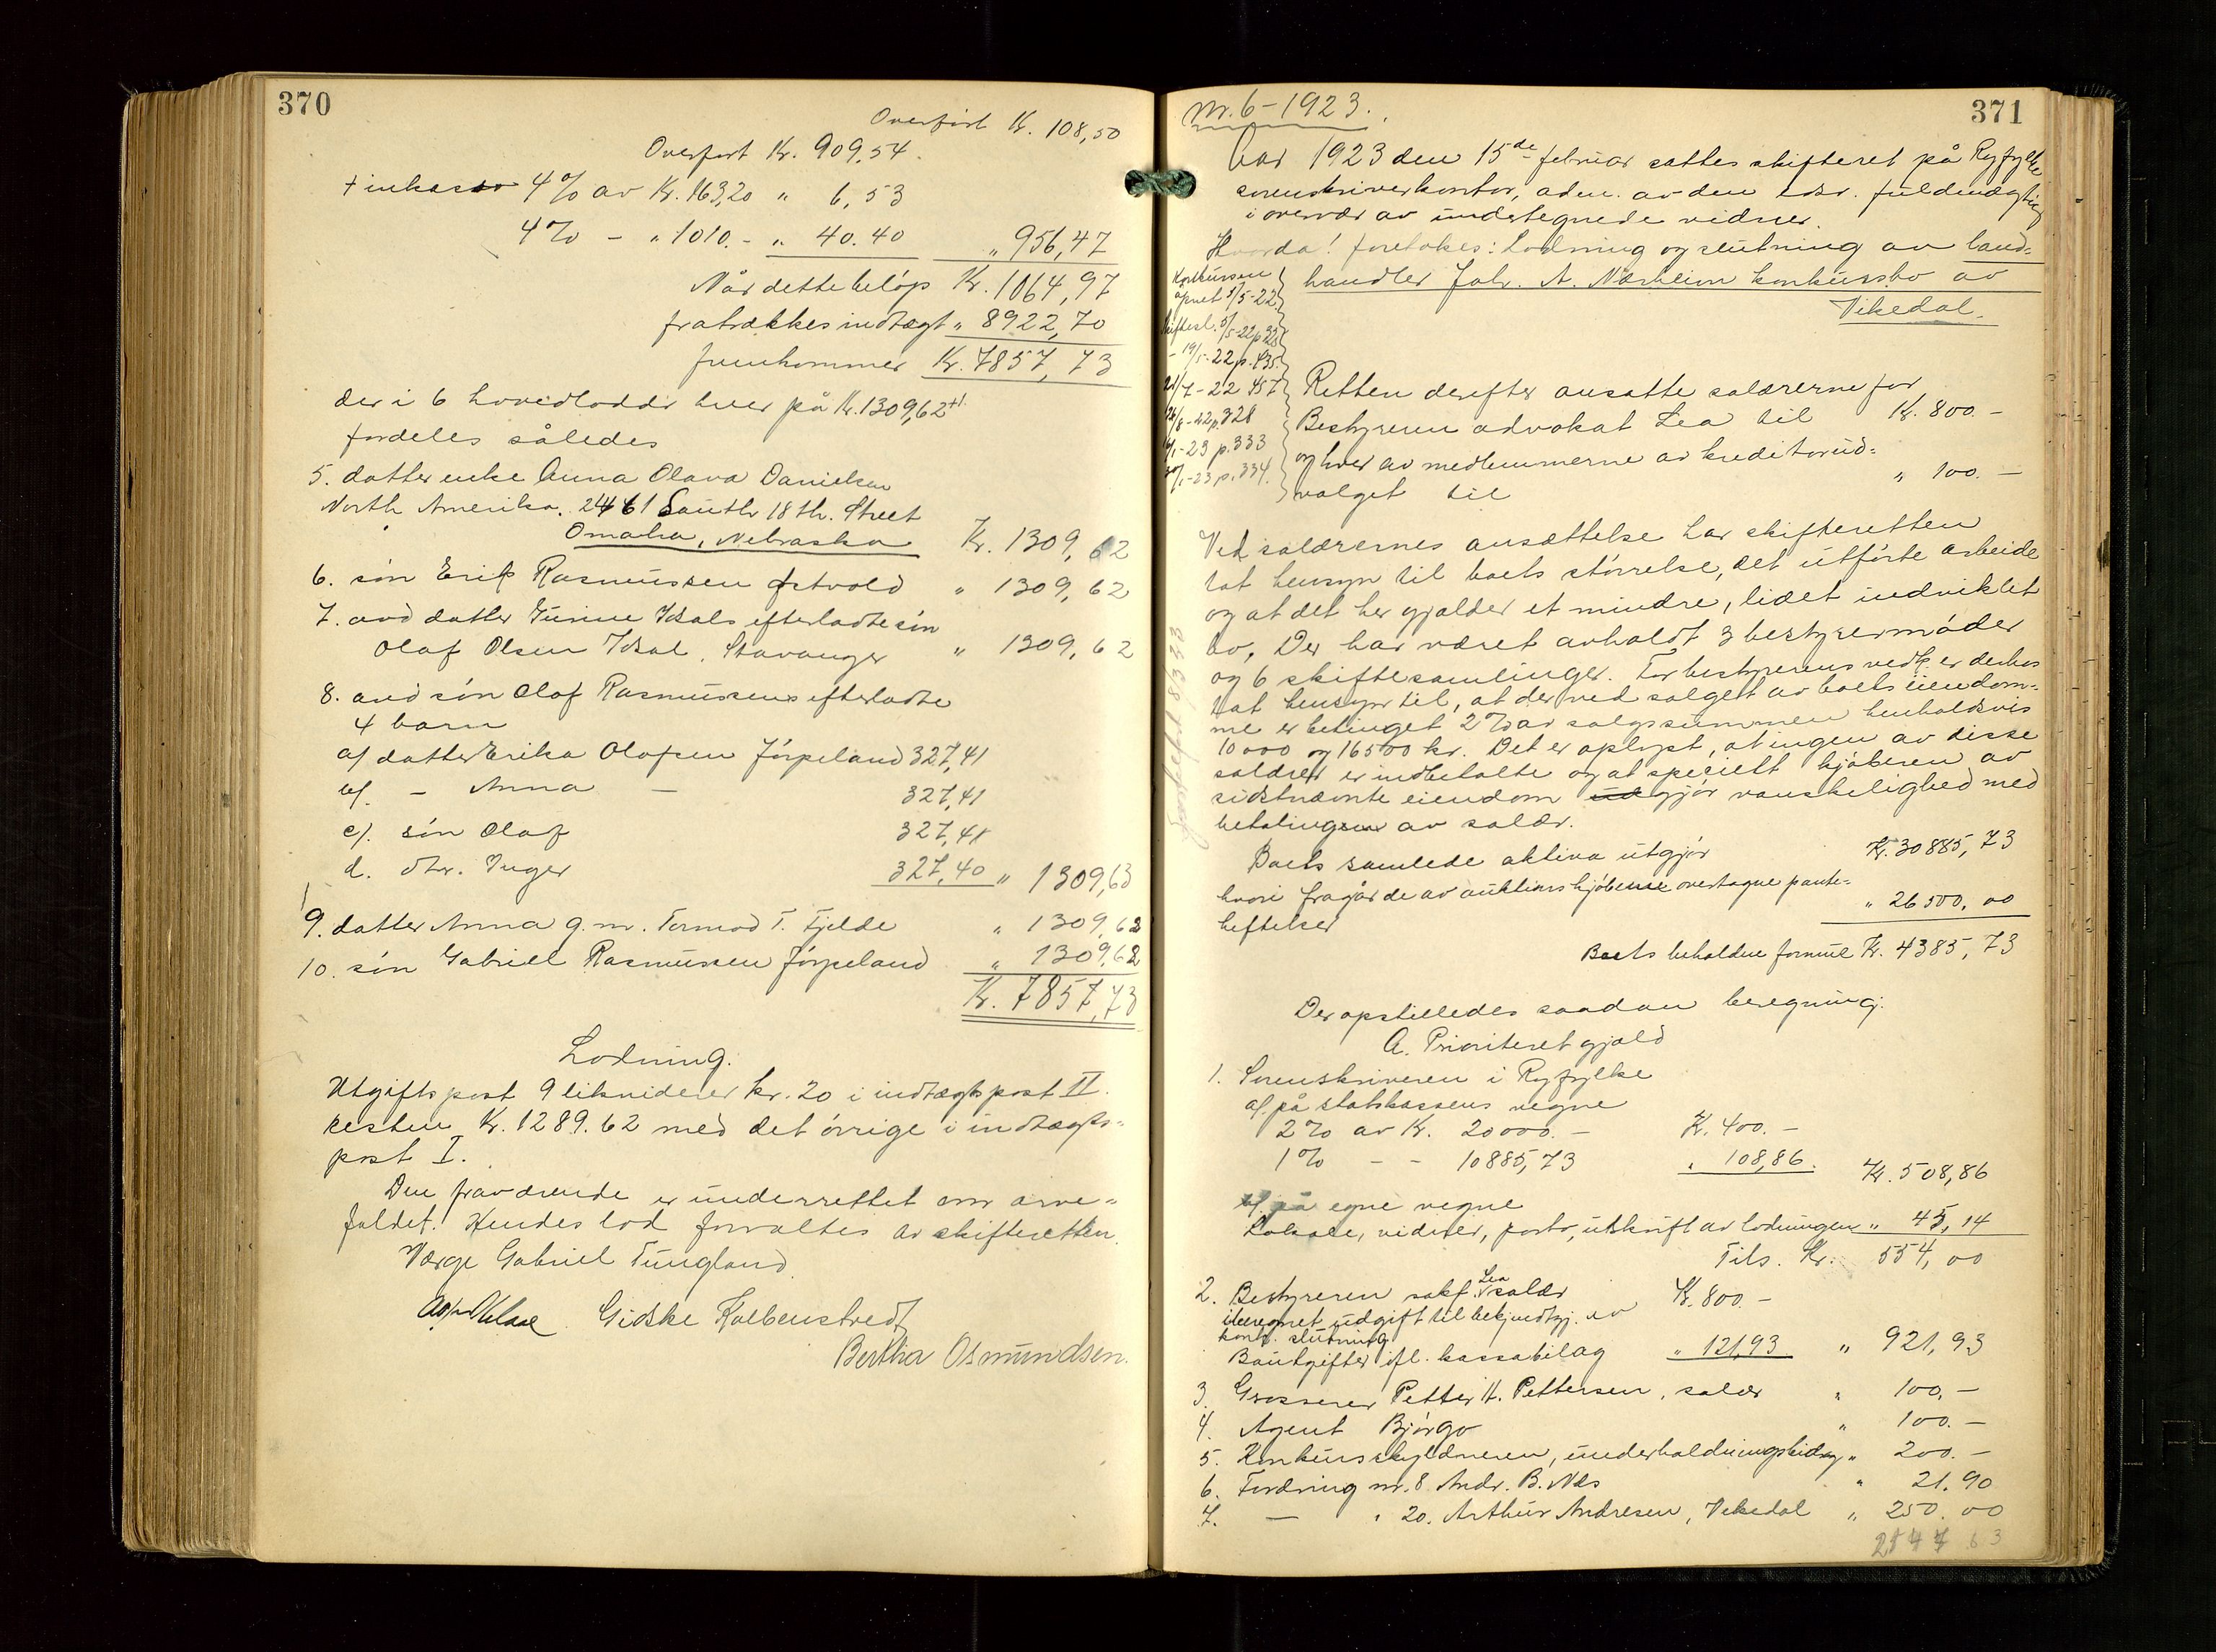 370
Overført Kr. 108,50
Overført Kr. 909,54.
+ inkasso 4% av Kr. 163,20 " 6,53
4% - " 1010.- " 40.40 " 956,47
Når dette beløp Kr. 1064,97
fratrækkes indtægt " 8922,70
fremkommer Kr. 7857,73
der i 6 hovedlodder hver på Kr. 1309,62
fordeles således
5. datter enke Anna Olava Danielsen
North Amerika. 2461 South 18th. Street
Omaha, Nebraska Kr. 1309,62
6. søn Erik Rasmussen Østvold " 1309,62
7. avd datter Gurine Idsals efterladte søn
Olaf Olsen Idsal, Stavanger " 1309,62
8. avd søn Olaf Rasmussens efterladte
4 barn
a/ datter Erika Olafsen Jørpeland 327,41
b/. - Anna - 327,41
c/. søn Olaf 327,41
d. dtr. Inger 327,40 " 1309,63
9. datter Anna g.m. Tormod T. Fjelde " 1309,62
10. søn Gabriel Rasmussen Jørpeland " 1309,62
Kr. 7857,73
Lodning.
Utgiftspost 9 likviderer kr. 20 i indtægtspost II.
resten Kr. 1289.62 med det øvrige i indtægts-
post I.
Den fraværende er underrettet om arve-
faldet. Hendes lod forvaltes av skifteretten.
Værge Gabriel Tungland.
Gidske Kolbenstvedt
Bertha Osmundsen.
371
Nr. 6 - 1923.
Aar 1923 den 15de februar sattes skifteret på Ryfylke
sorenskriverkontor, adm. av den edsv. fuldmægtig
i overvær av undertegnede vidner.
Hvorda! foretokes: Lodning og slutning av land-
handler Joh. A. Nærheim konkursbo av
Vikedal.
Konkursen
åpnet 5/5-22
skiftesl. 5/5-22 p 328
- 19/5-22 p. 435
/7-22 457
/8-22 p. 328
/1-23 p. 333
/1-23 p. 334.
Retten derefter ansatte salærerne for
Bestyreren advokat Lea til Kr. 800.-
og hver av medlemmerne av kreditorud-
valget til " 100.-
Ved salærernes ansættelse har skifteretten
tat hensyn til boets størrelse, det utførte arbeide
og at det her gjælder et mindre, lidet indviklet
bo. Der har været avholdt 3 bestyrermøder
og 6 skiftesamlinger. For bestyrerens vedk. er derhos
tat hensyn til, at der ved salget av boets eiendom-
me er betinget 2% av salgssummen henholdsvis
10000 og 16500 kr. Det er oplyst, at ingen av disse
salærer er indbetalte og at specielt kjøberen av
sidstnævnte eiendom gjør vanskelighed med
betalingen av salær.
Boets samlede aktiva utgjør Kr. 30885,73
hvori fragår de av auktionskjøberne overtagne pante-
heftelser " 26500,00
Boets beholdne formue Kr. 4385,73
Der opstilledes saadan beregning:
A. Prioriteret gjæld
1. Sorenskriveren i Ryfylke
a/. på statskassens vegne
2% av Kr. 20000.- Kr. 400.-
1% - - 10885,73 " 108,86. Kr. 508,86
b/. på egne vegne
Lokale, vidner, porto, utskrift av lodningen " 45,14
Tils. Kr. 554,00
2. Bestyreren sakf. Lea salær Kr. 800.-
iberegnet udgift til bekjendtgj. av
konk. slutning
Boutgifter ifl. kassabilag " 121,93 " 921,93
3. Grosserer Petter H. Pettersen, salær " 100.-
4. Agent Bjørgo " 100.-
5. Konkursskyldneren, underholdningsbidrag " 200.-
6. Fordring nr. 8 Andr. B. Næs " 21.90
7. - " 20. Arthur Andresen, Vikedal " 250.00
2147 63